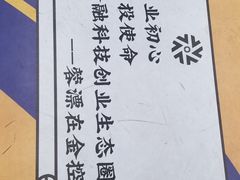 业初心
投使命
融科技创业生态圈
——蓉漂在金控